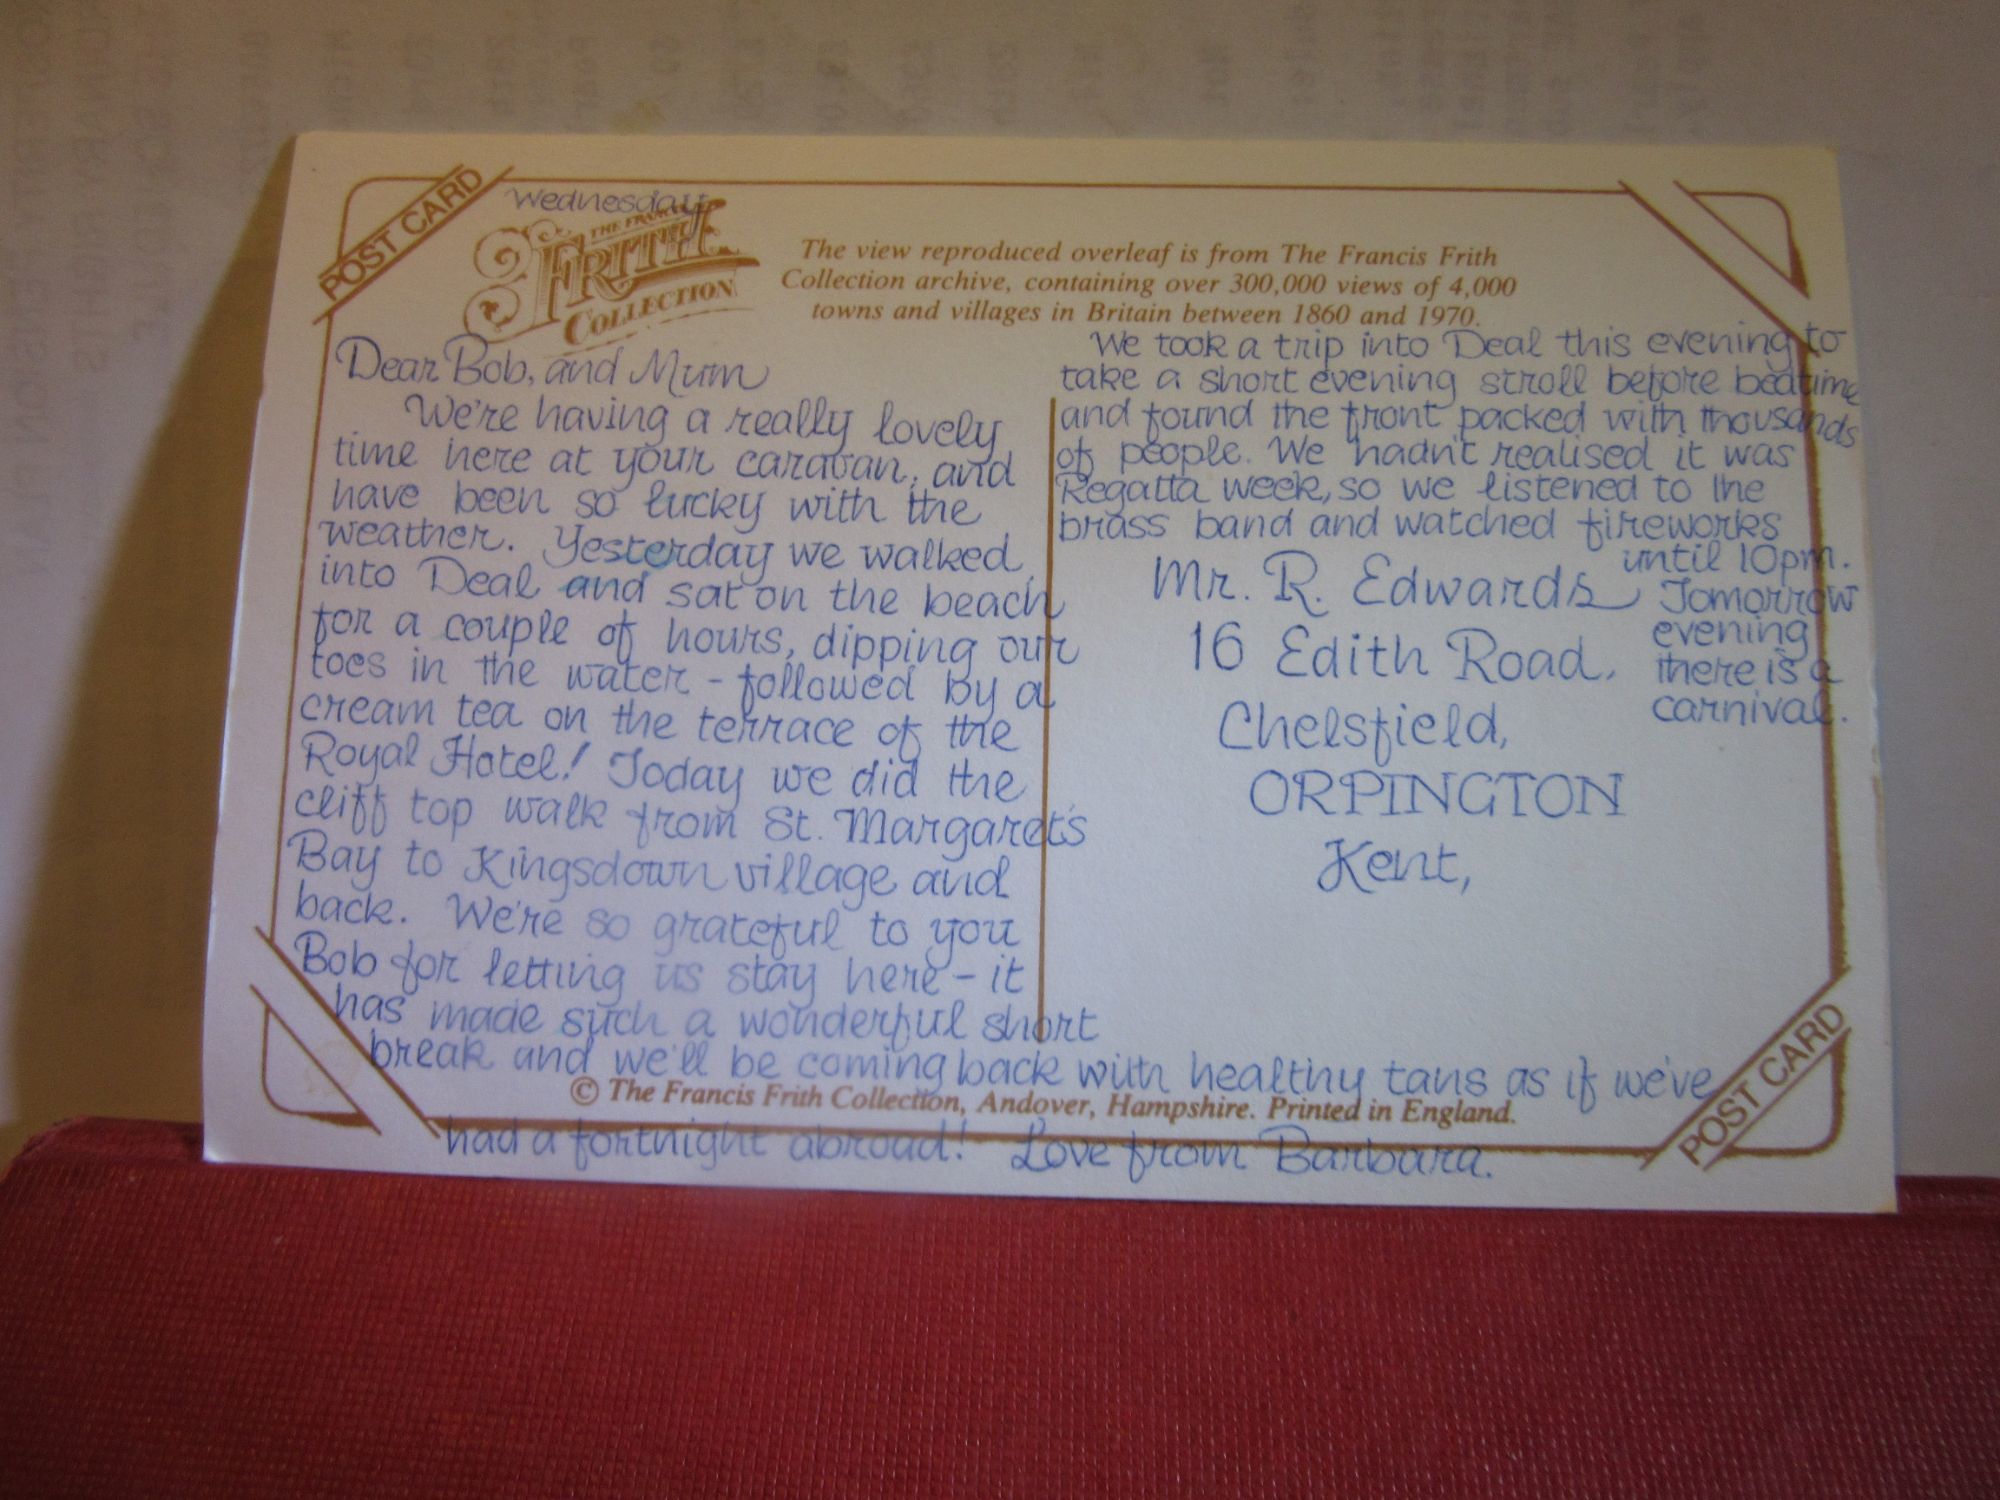 POST CARD
Wednesday
THE FRANCIS
FRITH
COLLECTION
The view reproduced overleaf is from The Francis Frith
Collection archive, containing over 300,000 views of 4,000
towns and villages in Britain between 1860 and 1970.
Dear Bob, and Mum
We're having a really lovely
time here at your caravan, and
have been so lucky with the
weather. Yesterday we walked
into Deal and sat on the beach
for a couple of hours, dipping our
toes in the water - followed by a
cream tea on the terrace of the
Royal Hotel! Today we did the
cliff top walk from St. Margaret's
Bay to Kingsdown village and
back. We're so grateful to you
Bob for letting us stay here - it
has made such a wonderful short
break and we'll be coming back with healthy tans as if we've
© The Francis Frith Collection, Andover, Hampshire. Printed in England.
had a fortnight abroad! Love from Barbara.
We took a trip into Deal this evening to
take a short evening stroll before bedtime
and found the front packed with thousands
of people. We hadn't realised it was
Regatta week, so we listened to the
brass band and watched fireworks
until 10pm.
Tomorrow
evening
there is a
carnival.
Mr. R. Edwards
16 Edith Road,
Chelsfield,
ORPINGTON
Kent,
POST CARD